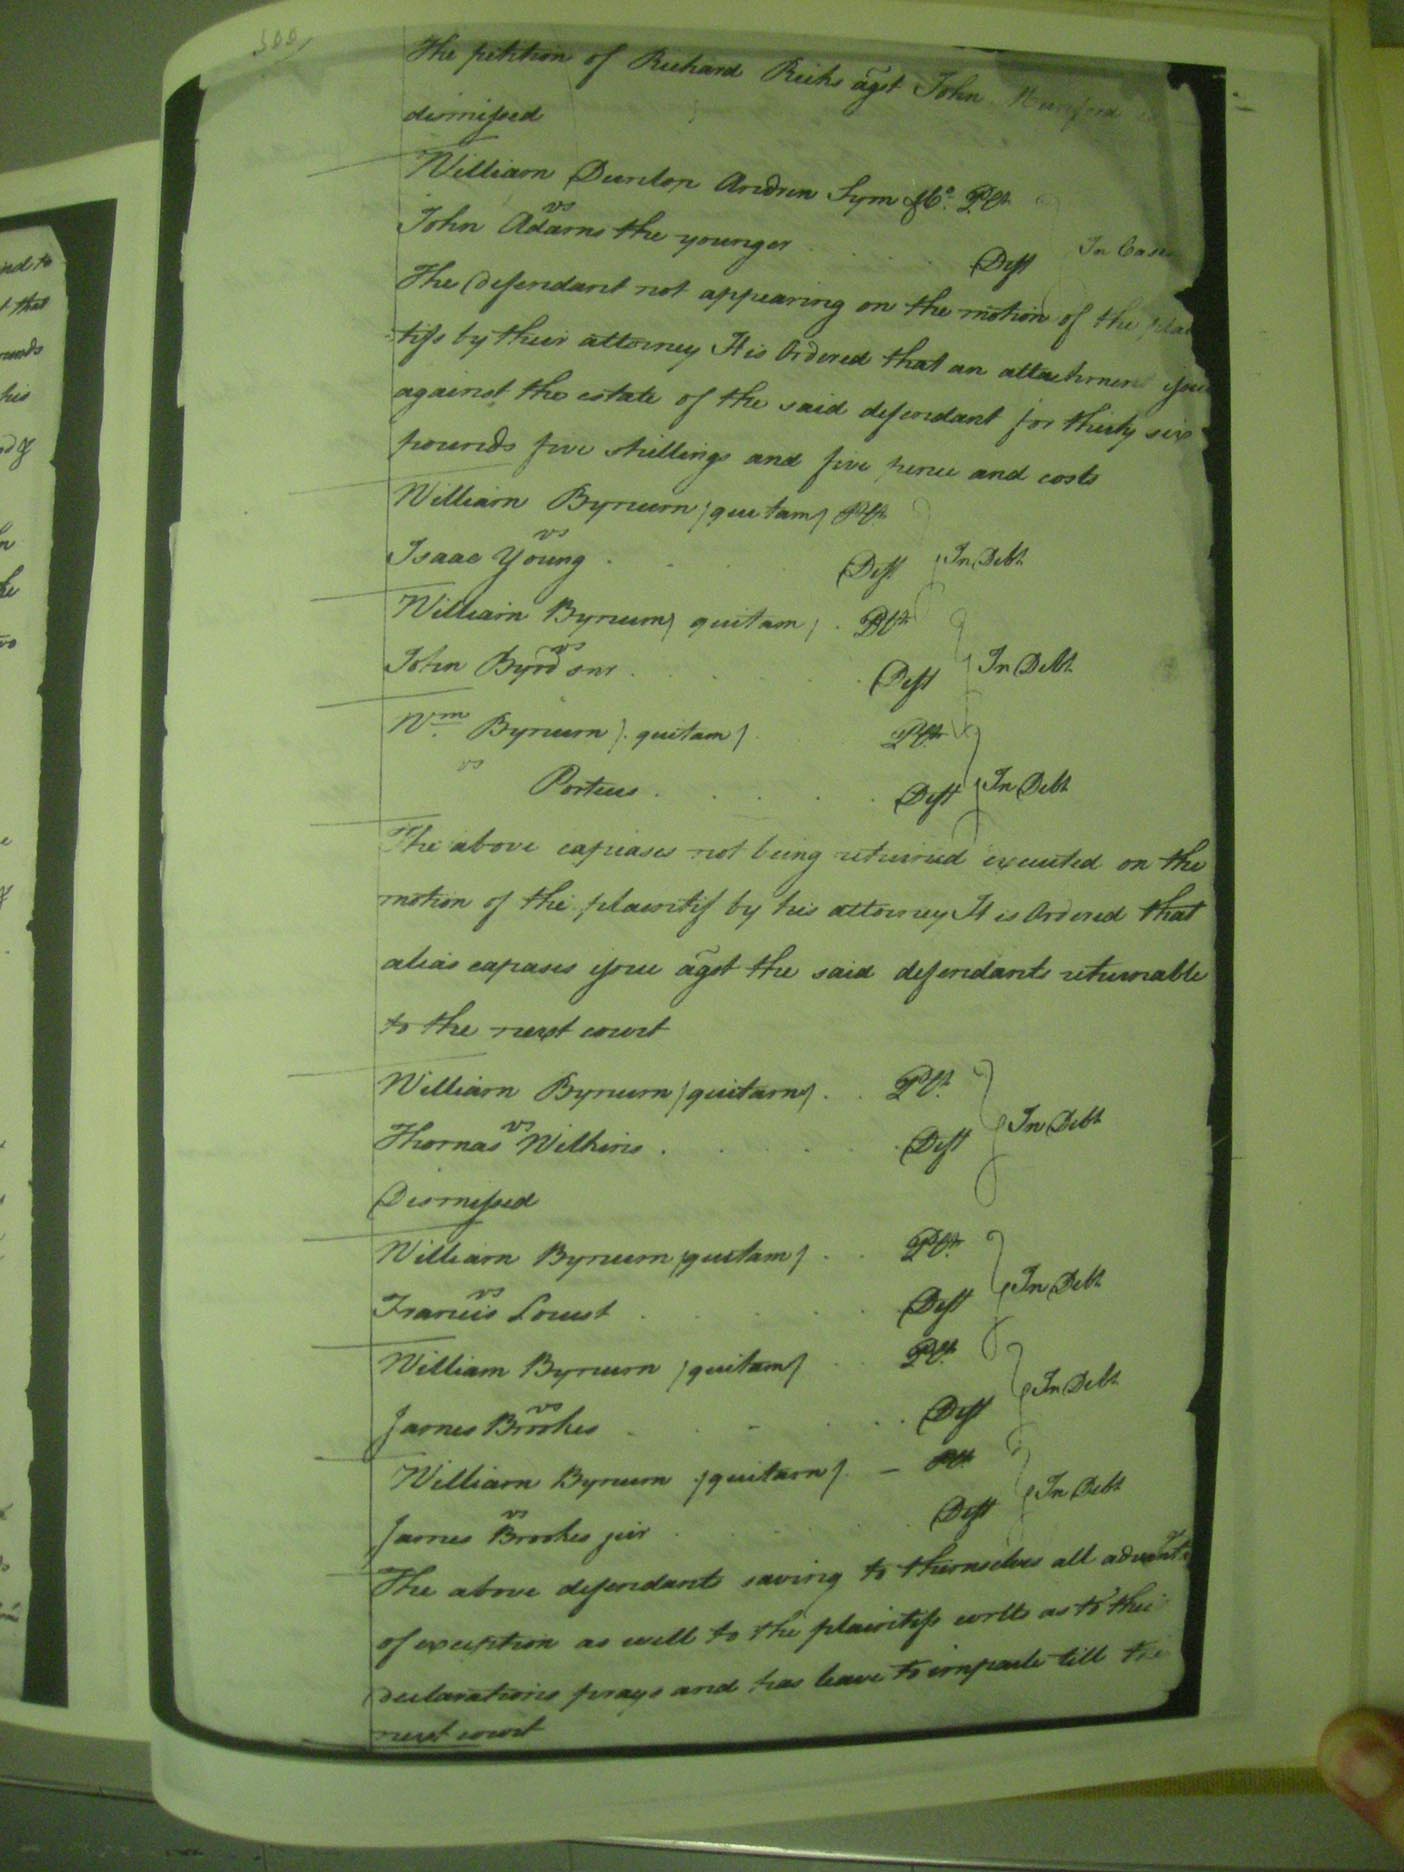 The petition of Richard Ricks agst John Munford
dismissed
William Dunlop Andrew Sym & Co. Plt
vs
John Adams the younger Deft In Case
The defendant not appearing on the motion of the plai
tifs by their attorney It is Ordered that an attachment issue
against the estate of the said defendant for thirty six
pounds five shillings and five pence and costs
William Bynum (quitam) Plt
vs
Isaac Young . . . Deft In Debt
William Bynum (quitam) . Plt
vs
John Byrd snr . . . . Deft In Debt
Wm Bynum (quitam) Plt
vs
Porteus . . . . . Deft In Debt
The above capiases not being returned executed on the
motion of the plaintif by his attorney It is Ordered that
alias capases issue agst the said defendants returnable
to the next court
William Bynum (quitam) . . Plt
vs
Thomas Wilkins . . . . . Deft In Debt
Dismissed
William Bynum (quitam) . . Plt
vs
Francis Loust . . . . Deft In Debt
William Bynum (quitam) . . Plt
vs
James Brookes . . . . Deft In Debt
William Bynum (quitam) – Plt
vs
James Brookes jur . . . . Deft In Debt
The above defendants saving to themselves all advantg
of exception as well to the plaintifs writs as to thei
declarations prays and has leave to imparle till the
next court